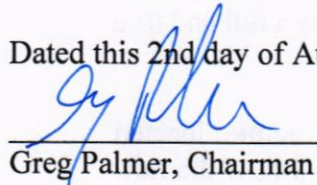 Dated this 2nd day of
Greg Palmer, Chairman